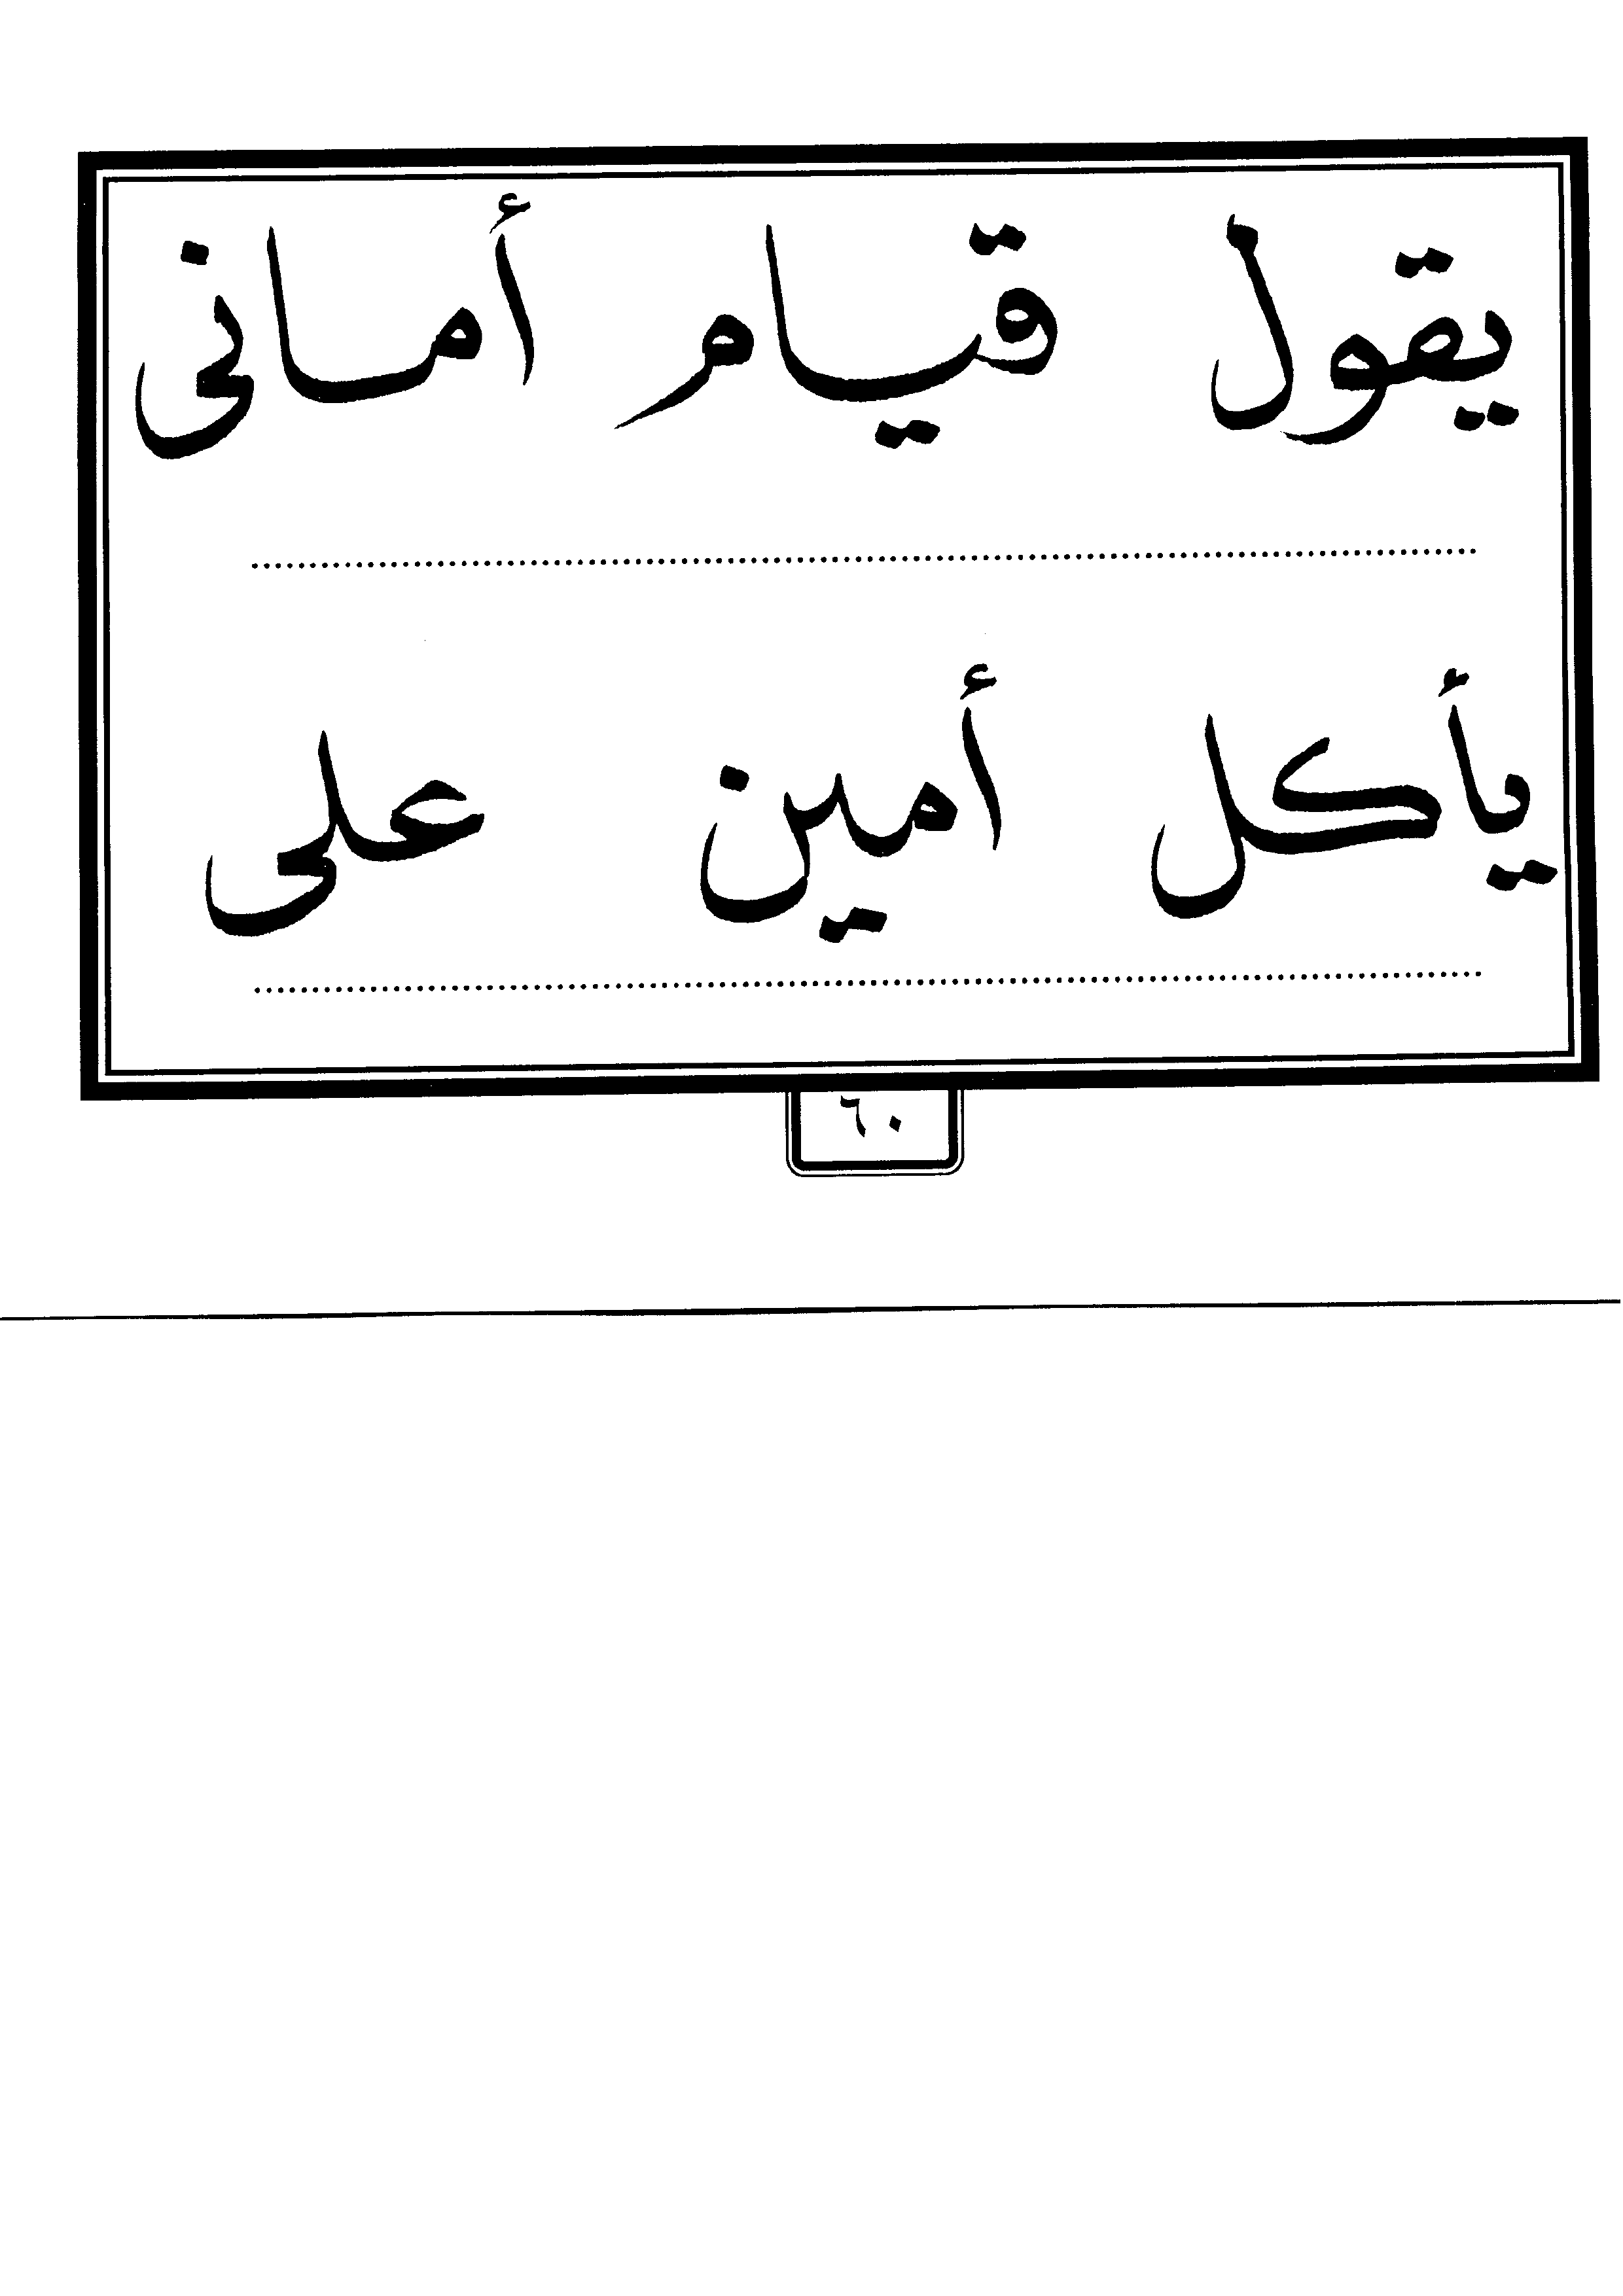 يقول قيام أمانى
يأكل أمين على
٦٠